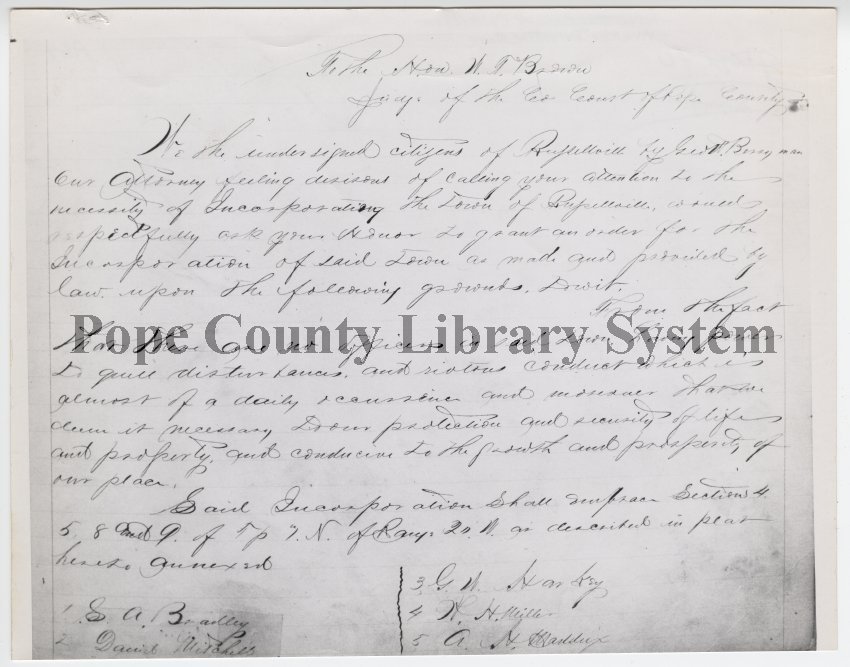 To the Hon. W. T. Brown
Judge of the Co Court of Pope County
We the undersigned citizens of Russellville by Geo W. Berryman
our Attorney feeling desirous of calling your attention to the
necessity of Incorporating the Town of Russellville, would
respectfully ask your Honor to grant an order for the
Incorporation of said Town as made and provided by
law. upon the following grounds. Towit.
From the fact
Pope County Library System
that there are no officers in said town having power
to quell disturbances, and riotous conduct which is
almost of a daily occurrence and moreover that we
deem it necessary to our protection and security of life
and property, and conducive to the growth and prosperity of
our place.
Said Incorporation shall embrace Sections 4
5, 8 and 9. of Tp 7. N. of Range 20. W. as described in plat
hereto annexed
1. S. A. Bradley
2 David Mitchell
3. G. W. Harkey
4 H. Miller
5 A. H. Maddux